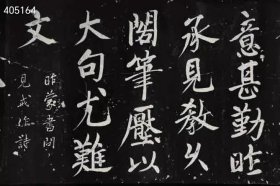 405164
意甚勤昨
承見教久
閣筆壓以
大句尤難
文
昨蒙書問
見或作詩